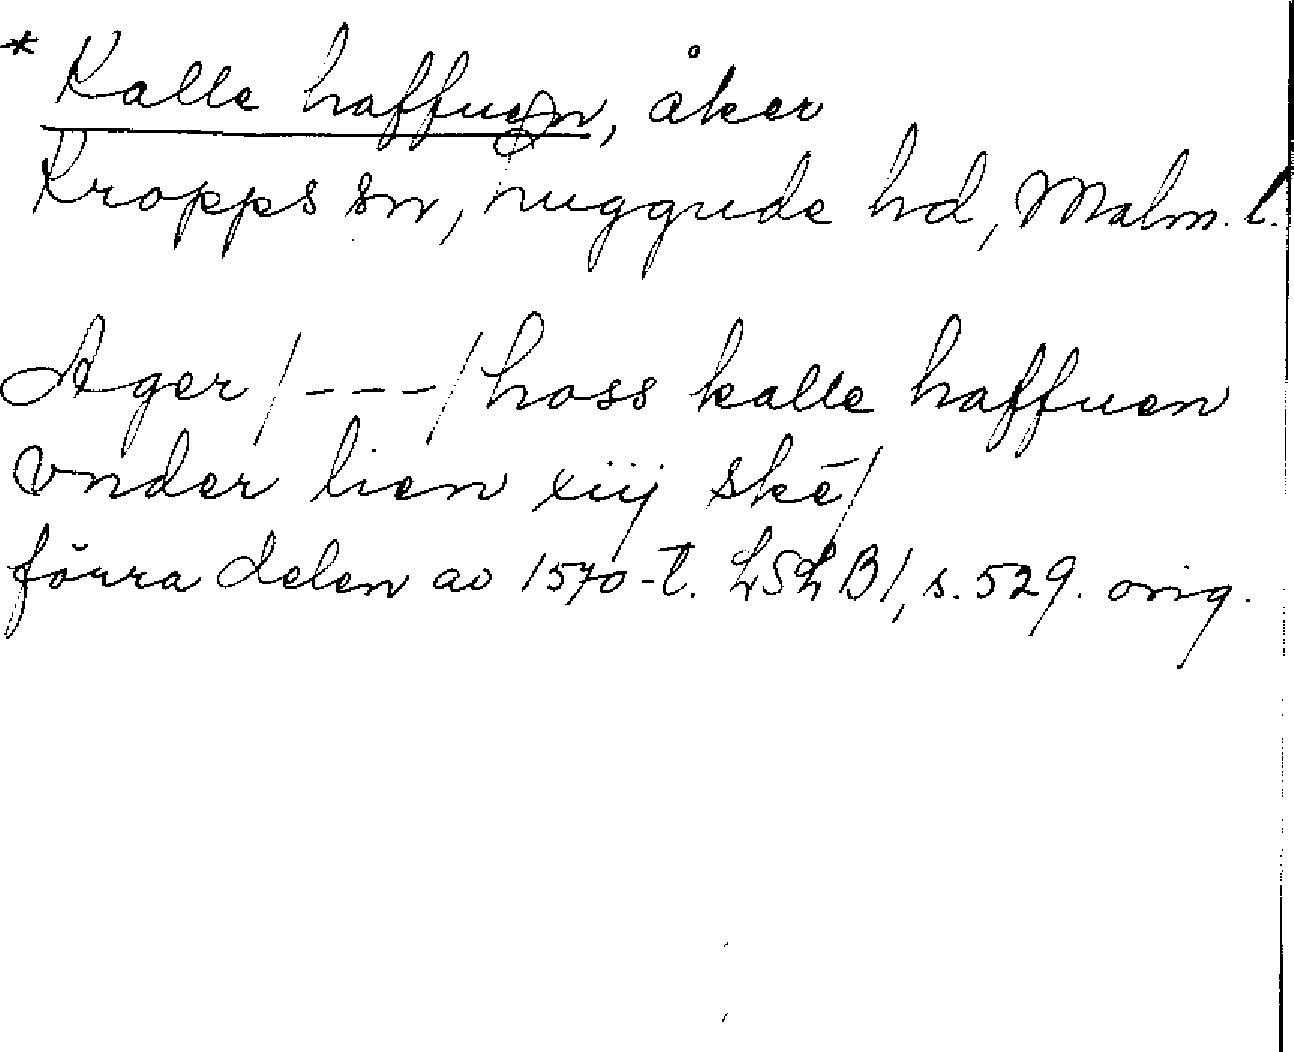 * Kalle haffuen, åker
Kropps sn, Luggude hd, Malm. l.
Ager /---/ hoss kalle haffuen
vnder lien xiij skē/
förra delen av 1570-t. LSLB 1, s. 529. orig.